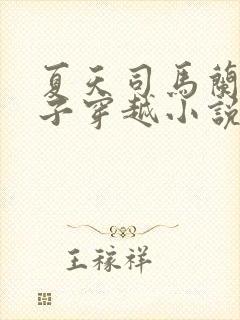 夏天司馬蘭
子穿越小說
王稼祥